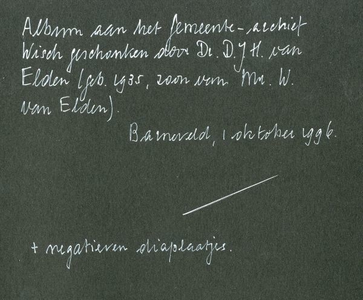 Album aan het gemeente-archief
Wisch geschonken door Dr. D.J.H. van
Elden (geb. 1935, zoon van Mr. W.
van Elden).
Barneveld, 1 oktober 1996.
+ negatieven diaplaatjes.